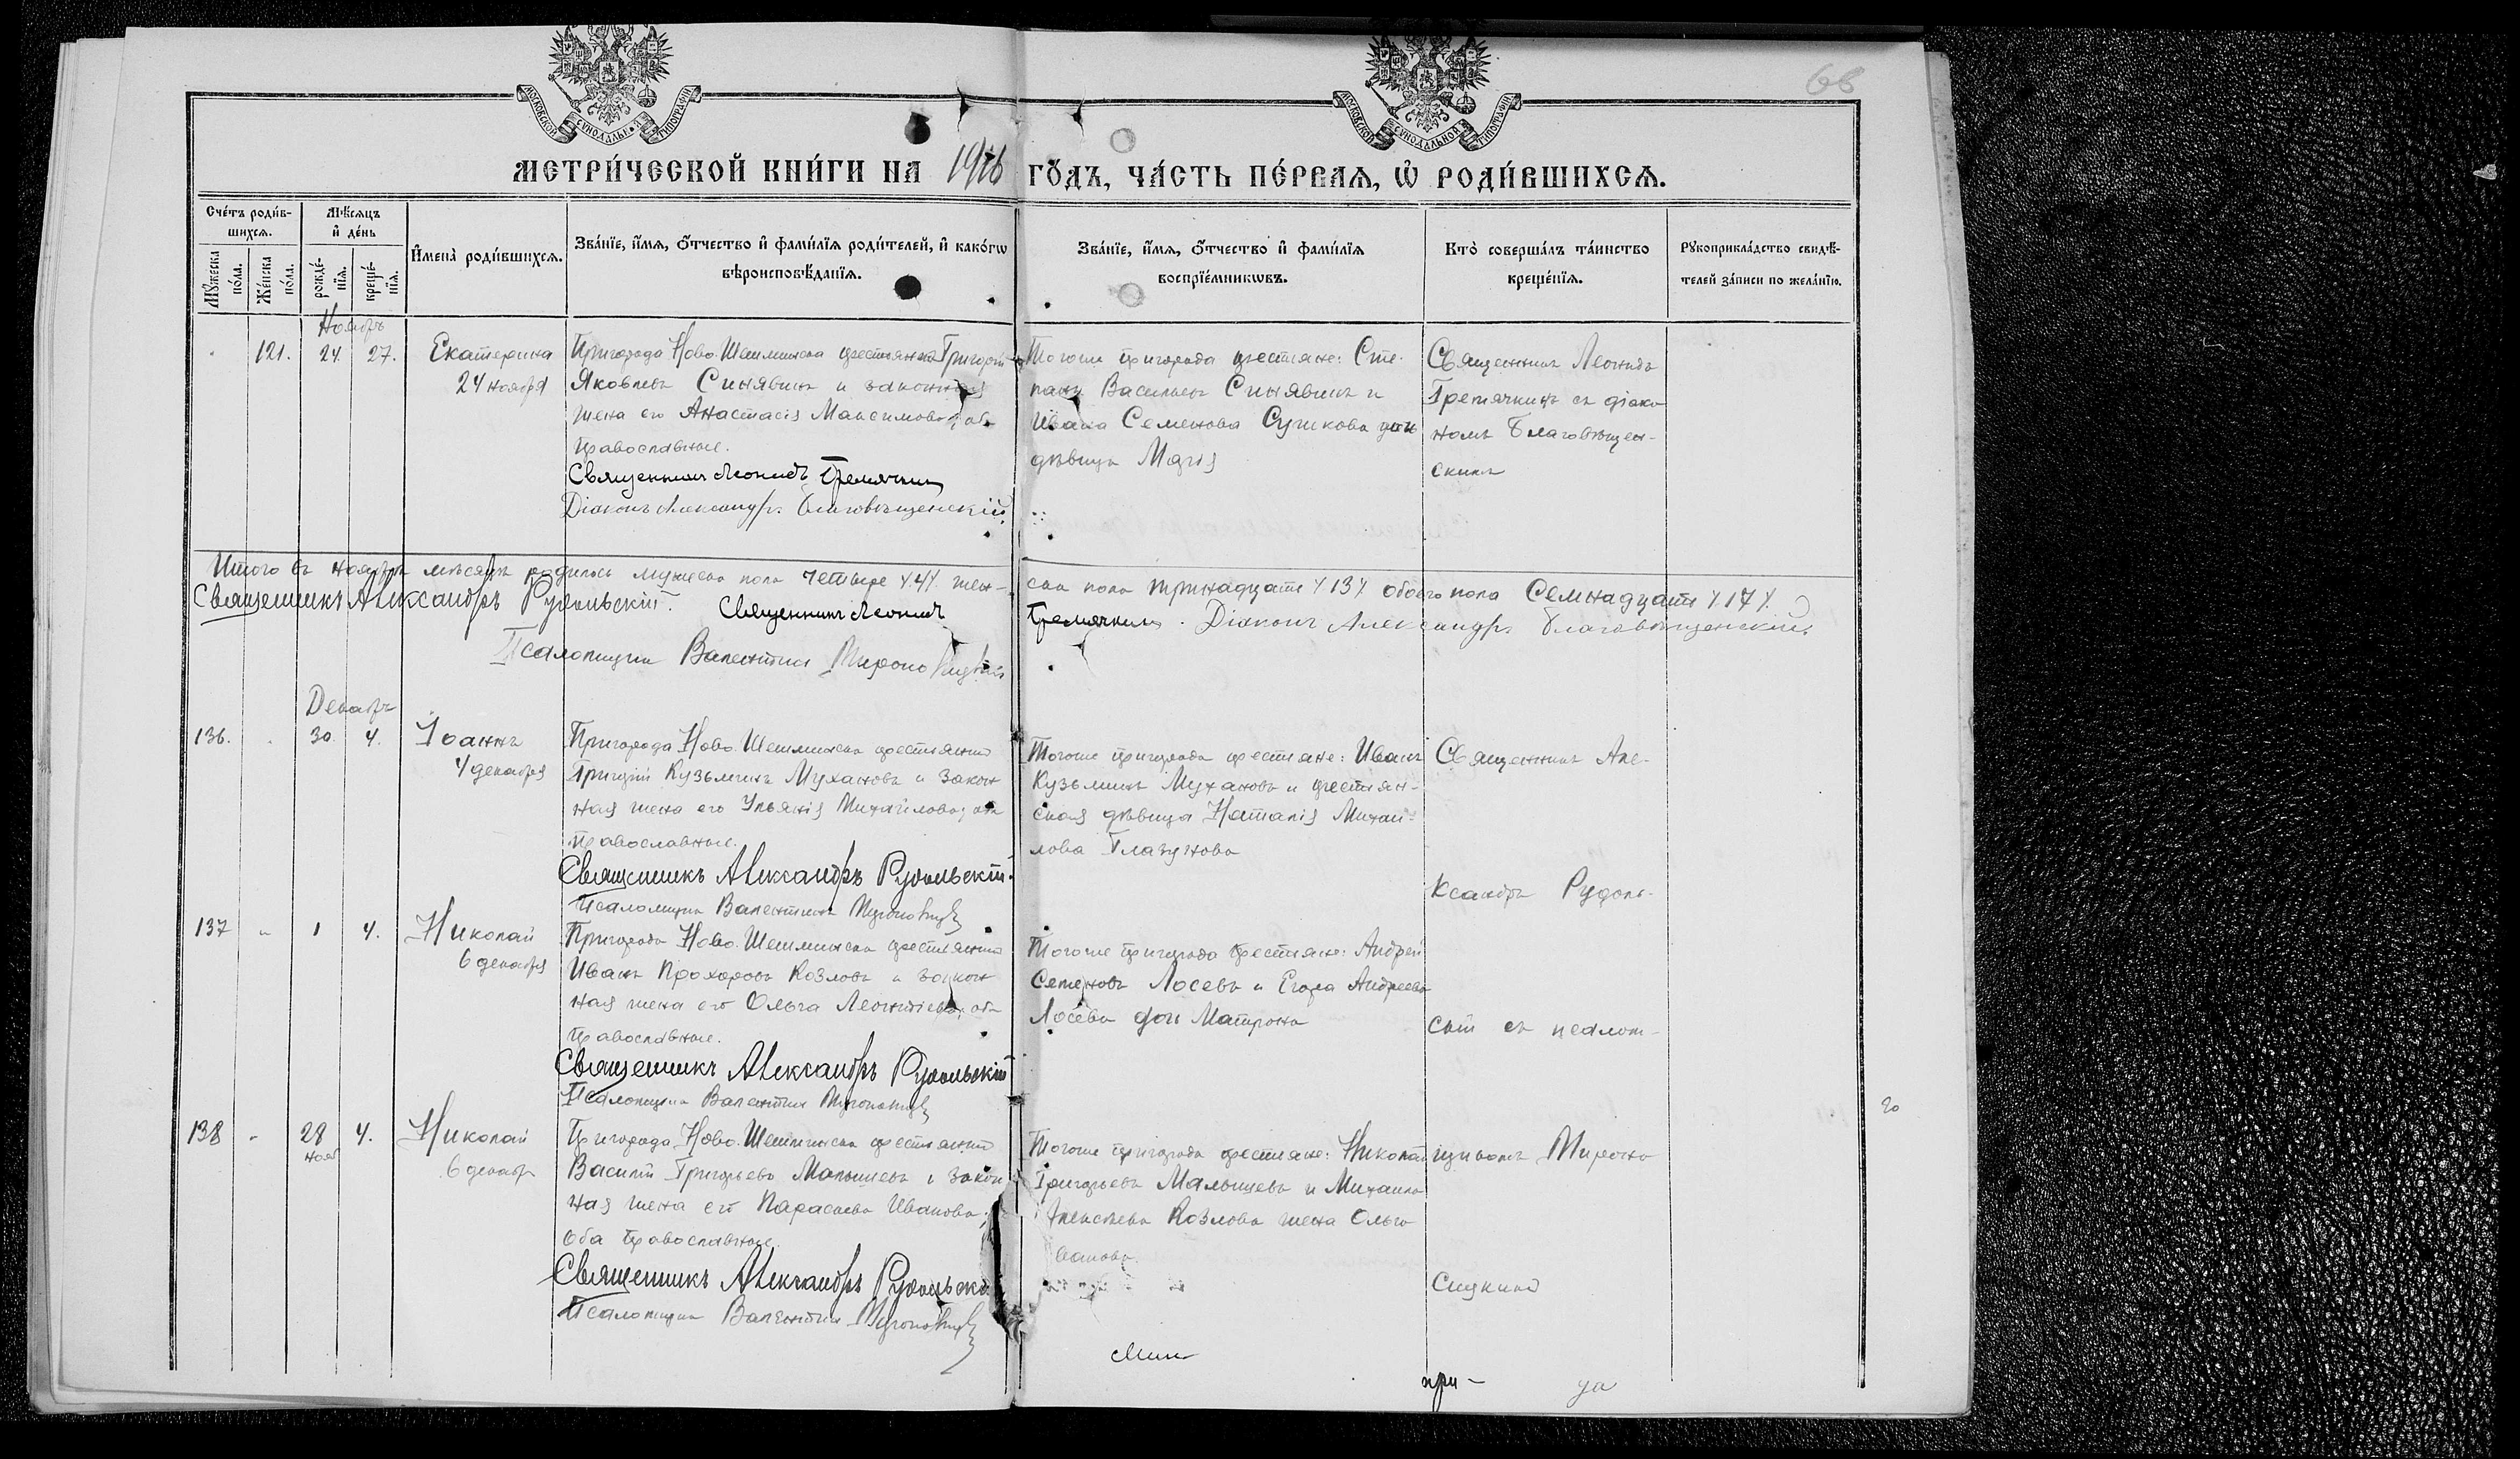 68
МОСКОВСКОЙ СѴНОДАЛЬНОЙ ТИПОГРАФІИ
МОСКОВСКОЙ СѴНОДАЛЬНОЙ ТИПОГРАФІИ
МЕТРИ́ЧЕСКОЙ КНИ́ГИ НА 1916 ГО́ДЪ, ЧА́СТЬ ПЕ́РВАѦ, Ѡ҆ РОДИ́ВШИХСѦ.
Сче́тъ роди́в-
шихсѧ.
Мѣ́сѧцъ
и҆ де́нь
Мꙋ́жеска по́ла.
Же́нска по́ла.
рожде́-
нїѧ.
креще́-
нїѧ.
И҆мена̀ роди́вшихсѧ.
Зва́нїе, и҆́мѧ, ѻ҆́тчество и҆ фами́лїѧ роди́телей, и҆ како́гѡ
вѣроисповѣ́данїѧ.
Зва́нїе, и҆́мѧ, ѻ҆́тчество и҆ фами́лїѧ
воспрїе́мникѡвъ.
Кто̀ соверша́лъ та́инство
креще́нїѧ.
Рꙋкоприкла́дство свидѣ́-
телей за́писи по жела́нїю.
Ноябрь
121. 24. 27. Екатерина
24 ноября
Пригорода Ново-Шешминска крестьянинъ Григорій
Яковлевъ Синявинъ и законная
жена его Анастасія Максимова, оба
православные.
Священникъ Леонидъ Гремячкин
Діаконъ Александръ Благовѣщенскій
Тогоже пригорода крестьяне: Сте-
панъ Васильевъ Синявинъ и
Ивана Семенова Сушкова дочь
дѣвица Марія
Священникъ Леонидъ
Гремячкинъ съ діако
номъ Благовѣщен-
скимъ
Итого въ ноябрѣ мѣсяцѣ родилось мужеска пола четыре /4/. жен-
ска пола тринадцать /13/ обоего пола Семнадцать /17/.
Священникъ Александръ Рудольскій. Священникъ Леонидъ
Гремячкин. Діаконъ Александръ Благовѣщенскій.
Псаломщикъ Валентин
Декабрь
136. 30. 4. Іоаннъ
4 декабря
Пригорода Ново-Шешминска крестьянинъ
Григорій Кузьминъ Мухановъ и закон
ная жена его Ульянія Михайлова, оба
православные.
Священникъ Александръ Рудольскій.
Псаломщикъ Валентинъ
Тогоже пригорода крестьяне: Иванъ
Кузьминъ Мухановъ и крестьян-
ская дѣвица Наталія Михай-
лова Глазунова
Священникъ Але-
ксандръ Рудоль-
137 " 1 4. Николай
6 декабря
Пригорода Ново-Шешминска крестьянинъ
Иванъ Прохоровъ Козловъ и закон
ная жена его Ольга Леонтіева, оба
православные.
Священникъ Александръ Рудольскій
Псаломщикъ Валентин
Тогоже пригорода крестьяне: Андрей
Семеновъ Лосевъ и Егора Андреева
Лосева дочь Матрона
скій съ псалом-
138 - 28 4. Николай
нояб
6 декабр
Пригорода Ново-Шешминска крестьянинъ
Василій Григорьевъ Малышевъ и закон
ная жена его Параскева Иванова,
оба православные.
Священникъ Александръ Рудольскі
Псаломщикъ Валентин
Тогоже пригорода крестьяне: Николай
Григорьевъ Малышевъ и Михаила
Алексѣева Козлова жена Ольга
щикомъ Мироно
при-